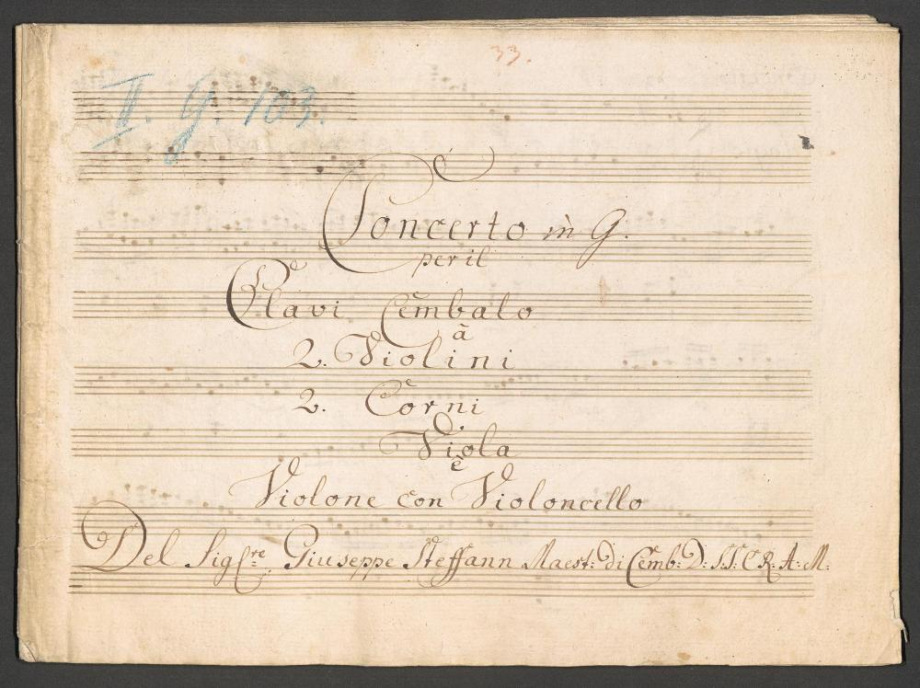 33.
II. G. 103.
Concerto in G.
per il
Clavi Cembalo
à
2. Violini
2. Corni
Viola
è
Violone con Violoncello
Del Sig:re Giuseppe Steffann Maest: di Cemb: D: S: S: C. R. A: M: